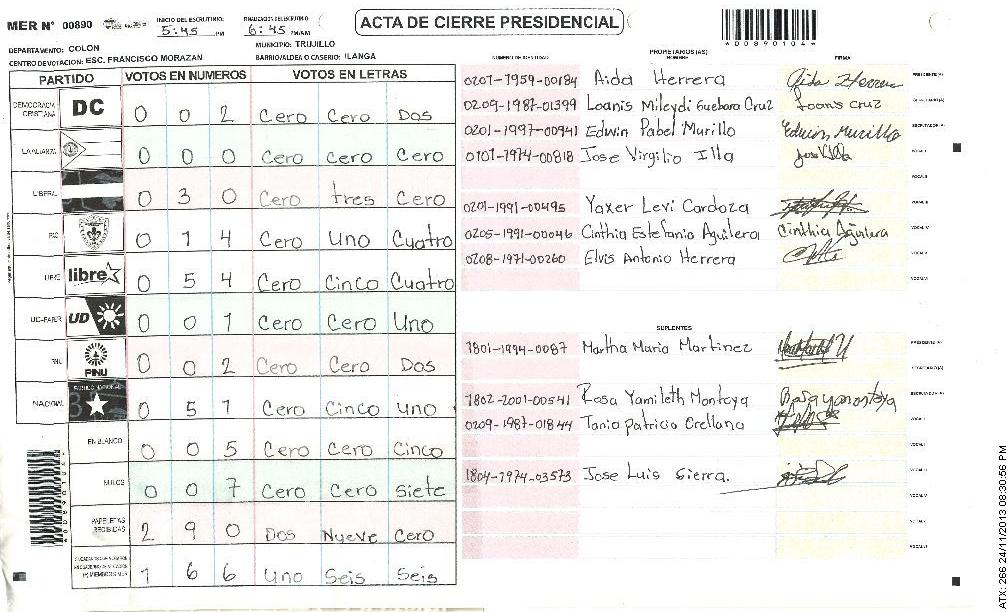 MER N° 00890
INICIO DEL ESCRUTINIO
5:45 PM
FINALIZACION DEL ESCRUTINIO
6:45 PM/AM
ACTA DE CIERRE PRESIDENCIAL
*00890104*
DEPARTAMENTO: COLON
MUNICIPIO: TRUJILLO
CENTRO DE VOTACION: ESC. FRANCISCO MORAZAN
BARRIO/ALDEA O CASERIO: ILANGA
PARTIDO VOTOS EN NUMEROS VOTOS EN LETRAS
DEMOCRACIA CRISTIANA DC 0 0 2 Cero Cero Dos
LA ALIANZA 0 0 0 Cero Cero Cero
LIBERAL 0 3 0 Cero tres Cero
PAC 0 1 4 Cero Uno Cuatro
LIBRE libre 0 5 4 Cero Cinco Cuatro
UD-FAPER UD 0 0 1 Cero Cero Uno
PINU PINU 0 0 2 Cero Cero Dos
NACIONAL PARTIDO NACIONAL 0 5 1 Cero Cinco uno
EN BLANCO 0 0 5 Cero Cero Cinco
NULOS 0 0 7 Cero Cero Siete
PAPELETAS RECIBIDAS 2 9 0 Dos Nueve Cero
1 6 6 Uno Seis Seis
PROPIETARIOS (AS)
NUMERO DE IDENTIDAD NOMBRE FIRMA
0201-1959-00184 Aida Herrera Aida Herrera PRESIDENTE(A)
0209-1987-01399 Loanis Mileydi Guebara Cruz Loanis Cruz SECRETARIO(A)
0201-1997-00941 Edwin Pabel Murillo Edwin Murillo ESCRUTADOR(A)
0101-1974-00818 Jose Virgilio Illa VOCAL I
VOCAL II
0201-1991-00495 Yaxer Levi Cardoza VOCAL III
0205-1991-00046 Cinthia Estefania Aguilera Cinthia Aguilera VOCAL IV
0208-1971-00260 Elvis Antonio Herrera VOCAL V
VOCAL VI
SUPLENTES
1801-1994-0087 Martha Maria Martinez PRESIDENTE(A)
SECRETARIO(A)
1802-2001-00541 Rosa Yamileth Montoya ESCRUTADOR(A)
0209-1987-01844 Tania Patricia Orellana VOCAL I
VOCAL II
1804-1974-03573 Jose Luis Sierra. VOCAL III
VOCAL IV
VOCAL V
VOCAL VI
*00890104*
ATX: 266 24/11/2013 08:30:56 PM